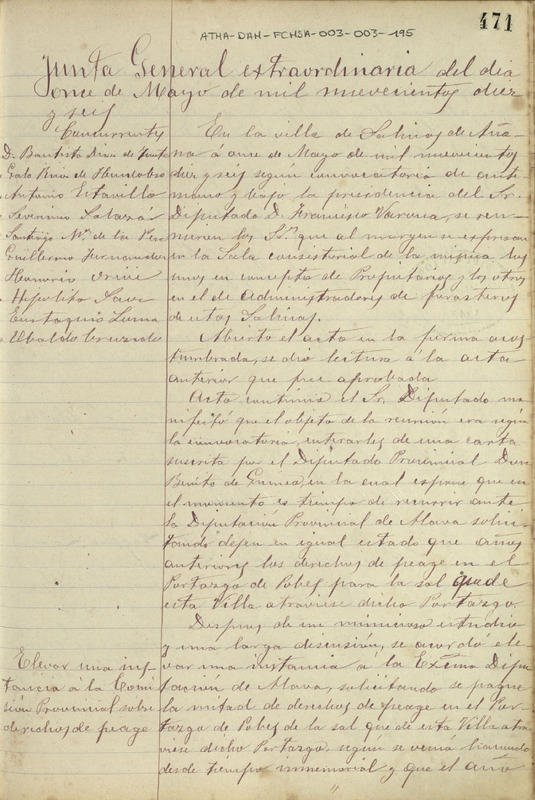 471
ATHA-DAH-FCHSA-003-003-195
Junta General extraordinaria del dia
once de Mayo de mil nuevecientos diez
y seis
Concurrentes
D. Bautista
" Antonio Estavillo
" Severiano Salazar
" Santiago Mz. de la
" Guillermo Fernandez
" Honorio
" Hipolito
" Eustaquio
" Ubaldo
En la villa de Salinas de Aña-
na á once de Mayo de mil nuevecientos
diez y seis segun convocatoria de ante-
mano y bajo la presidencia del Sr.
Diputado D. Francisco Varona, se reu-
nieron los Sres. que al margen se expresan
en la Sala consistorial de la misma los
unos en concepto de Propietarios y los otros
en el de Administradores de forasteros
de estas Salinas.
Abierto el acto en la forma acos-
tumbrada, se dio lectura á la acta
anterior que fue aprobada
Acto continuo el Sr. Diputado ma-
nifestó que el objeto de la reunión era según
la convocatoria, enterarles de una carta
suscrita por el Diputado Provincial Don
Benito de Guinea, en la cual expone que en
el momento es tiempo de recurrir ante
la Diputación Provincial de Alava solici-
tando dejen en igual estado que años
anteriores los derechos de peage en el
Portazgo de Pobes para la sal que de
esta Villa atraviese dicho Portazgo.
Despues de un minucioso estudio
y una larga discusión, se acordó ele-
var una instancia a la Excma Dipu-
tación de Alava, solicitando se pague
la mitad de derechos de peage en el Por-
tazgo de Pobes de la sal que de esta Villa atra-
viese dicho Portazgo, según se venia haciendo
desde tiempo inmemorial y que el año
Elevar una ins-
tancia á la Comi-
sión Provincial sobre
derechos de peage